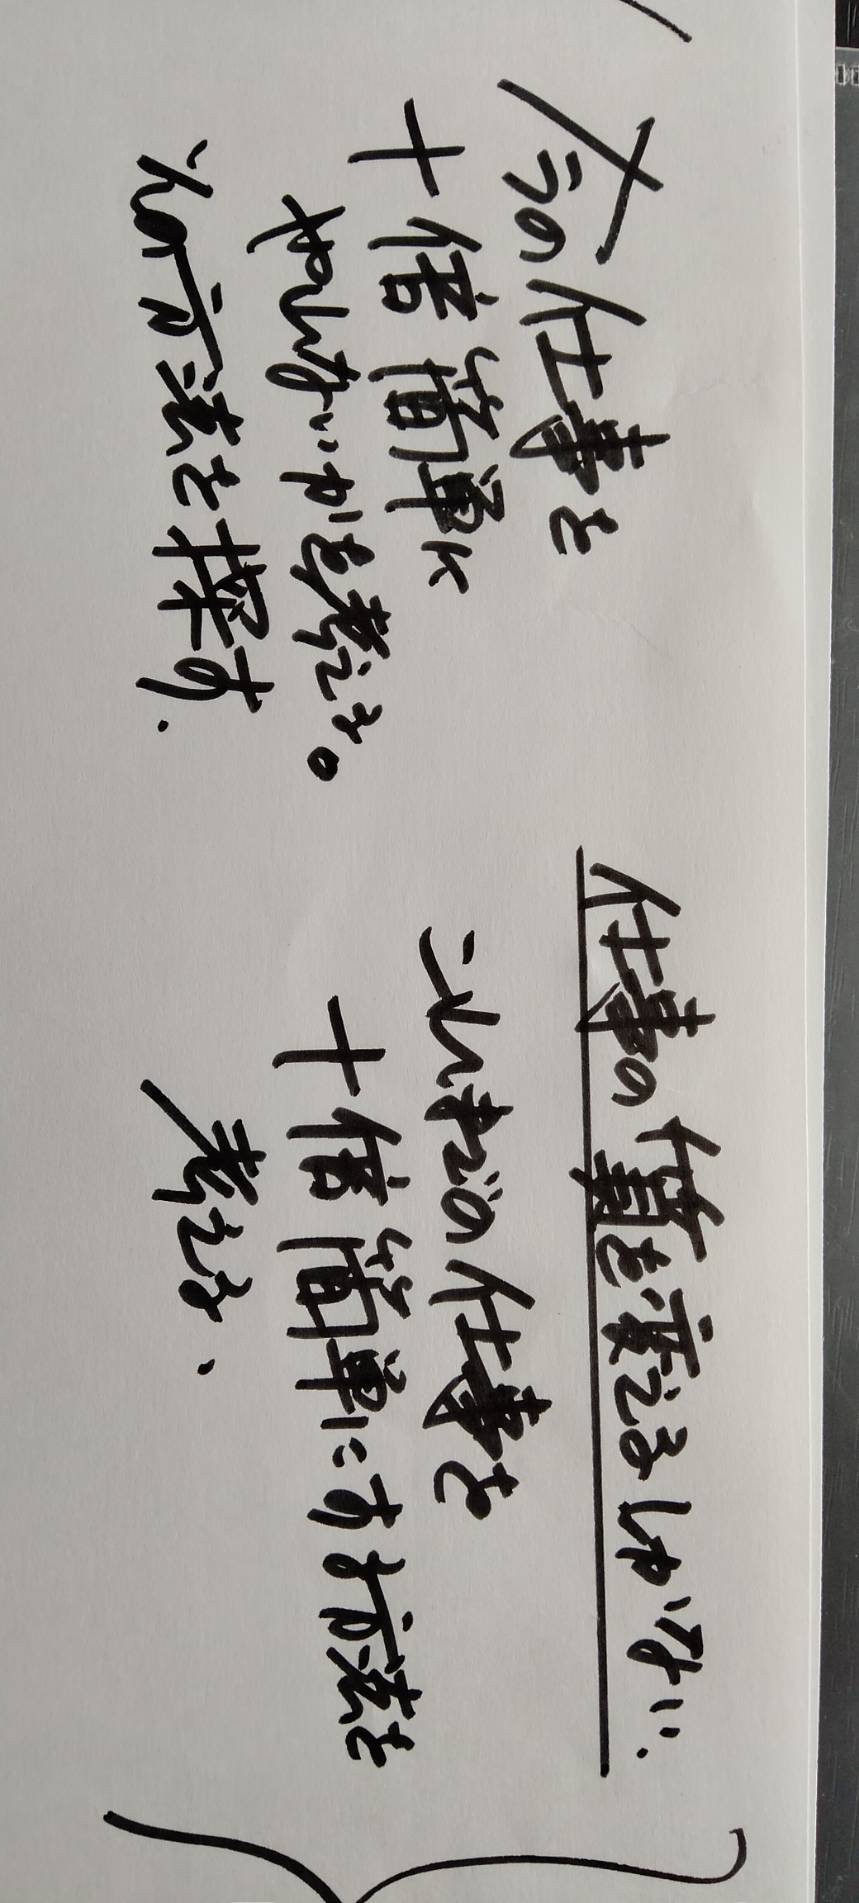 今の仕事を
十倍簡単に
やれないかを考える。
その方法を探す.
仕事の質を変えるしかない.
これまでの仕事を
十倍簡単にする方法を
考える、